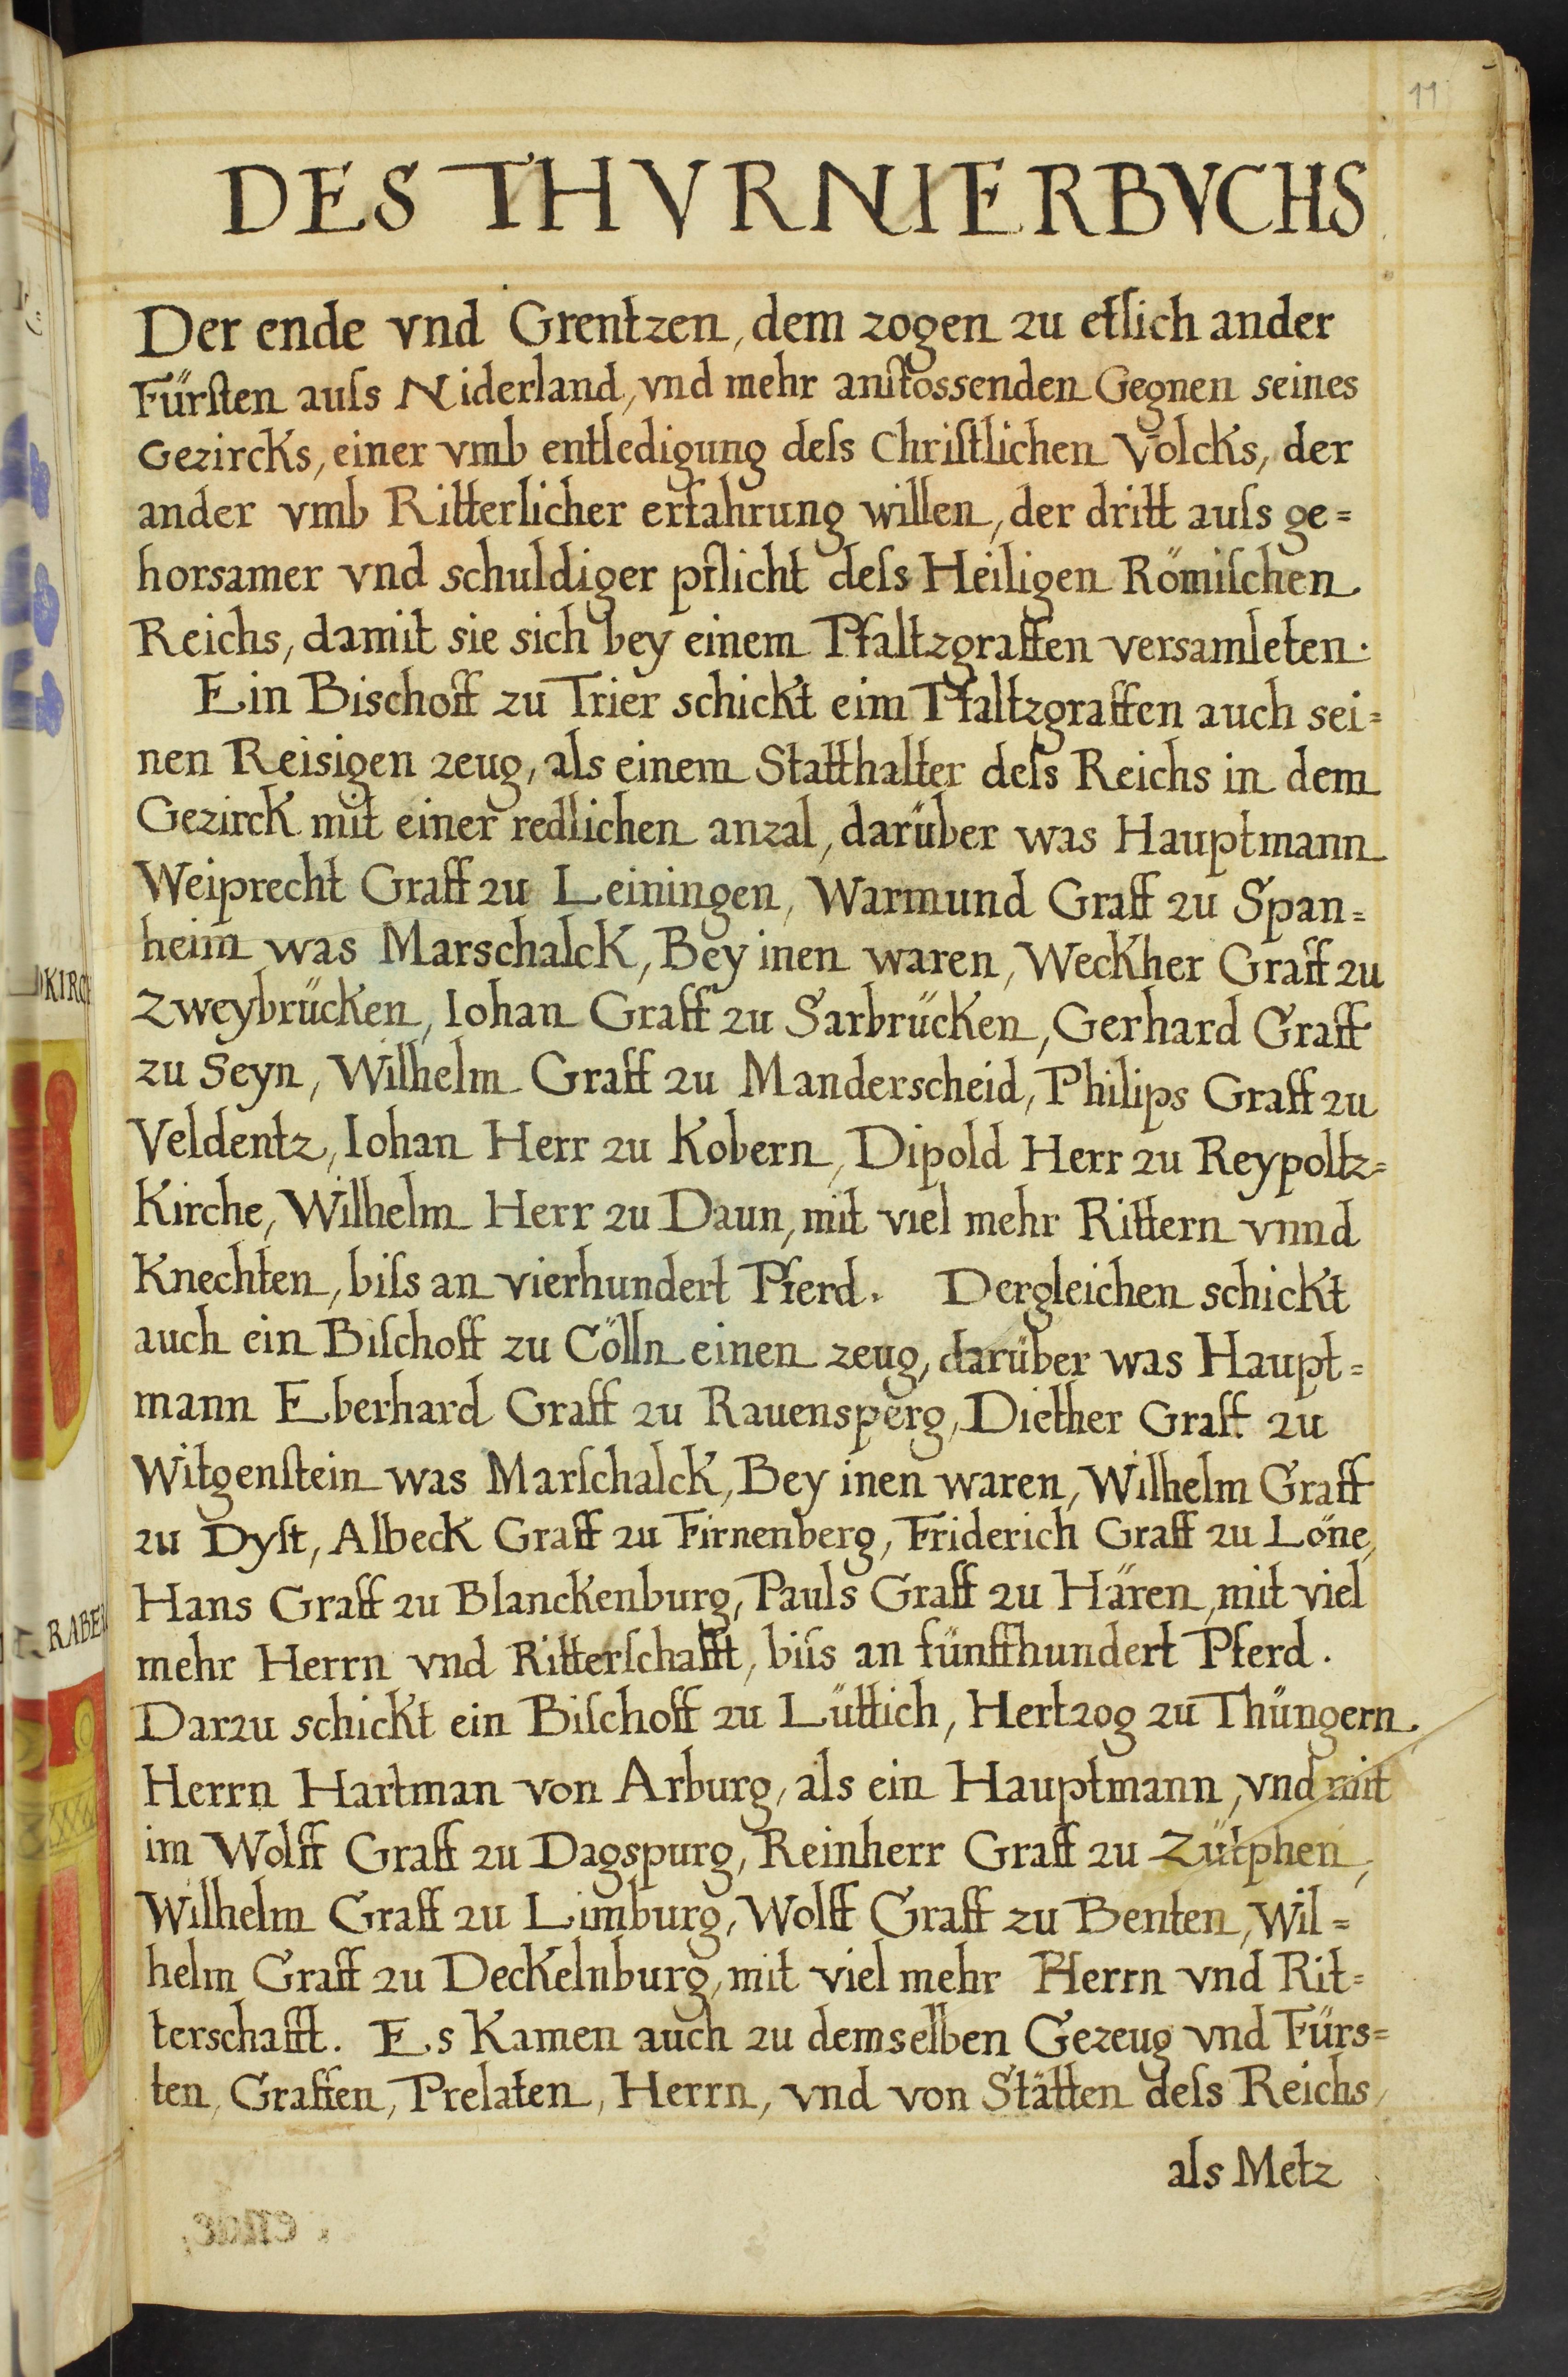 11
DES THVRNIERBVCHS
Der ende vnd Grentzen, dem zogen zu etlich ander
Fürſten auſs Niderland, vnd mehr anſtossenden Gegnen seines
Gezircks, einer vmb entledigung deſs Chriſtlichen Volcks, der
ander vmb Ritterlicher erfahrung willen, der dritt auſs ge=
horsamer vnd schuldiger pflicht deſs Heiligen Römiſchen
Reichs, damit sie sich bey einem Pfaltzgraffen versamleten.
Ein Bischoff zu Trier schickt eim Pfaltzgraffen auch sei=
nen Reisigen zeug, als einem Statthalter deſs Reichs in dem
Gezirck mit einer redlichen anzal, darüber was Hauptmann
Weiprecht Graff zu Leiningen, Warmund Graff zu Span=
heim was Marschalck, Bey inen waren, Weckher Graff zu
Zweybrücken, Iohan Graff zu Sarbrücken, Gerhard Graff
zu Seyn, Wilhelm Graff zu Manderscheid, Philips Graff zu
Veldentz, Iohan Herr zu Kobern, Dipold Herr zu Reypoltz=
Kirche, Wilhelm Herr zu Daun, mit viel mehr Rittern vnnd
Knechten, biſs an vierhundert Pferd. Dergleichen schickt
auch ein Biſchoff zu Cölln einen zeug, darüber was Haupt=
mann Eberhard Graff zu Rauensperg, Diether Graff zu
Witgenſtein was Marſchalck, Bey inen waren, Wilhelm Graff
zu Dyſt, Albeck Graff zu Firnenberg, Friderich Graff zu Löne,
Hans Graff zu Blanckenburg, Pauls Graff zu Hären, mit viel
mehr Herrn vnd Ritterſchafft, biſs an fünffhundert Pferd.
Darzu schickt ein Biſchoff zu Lüttich, Hertzog zu Thüngern,
Herrn Hartman von Arburg, als ein Hauptmann, vnd mit
im Wolff Graff zu Dagspurg, Reinherr Graff zu Zütphen,
Wilhelm Graff zu Limburg, Wolff Graff zu Benten, Wil=
helm Graff zu Deckelnburg, mit viel mehr Herrn vnd Rit=
terschafft. Es Kamen auch zu demselben Gezeug vnd Fürs=
ten, Graffen, Prelaten, Herrn, vnd von Stätten deſs Reichs,
als Metz